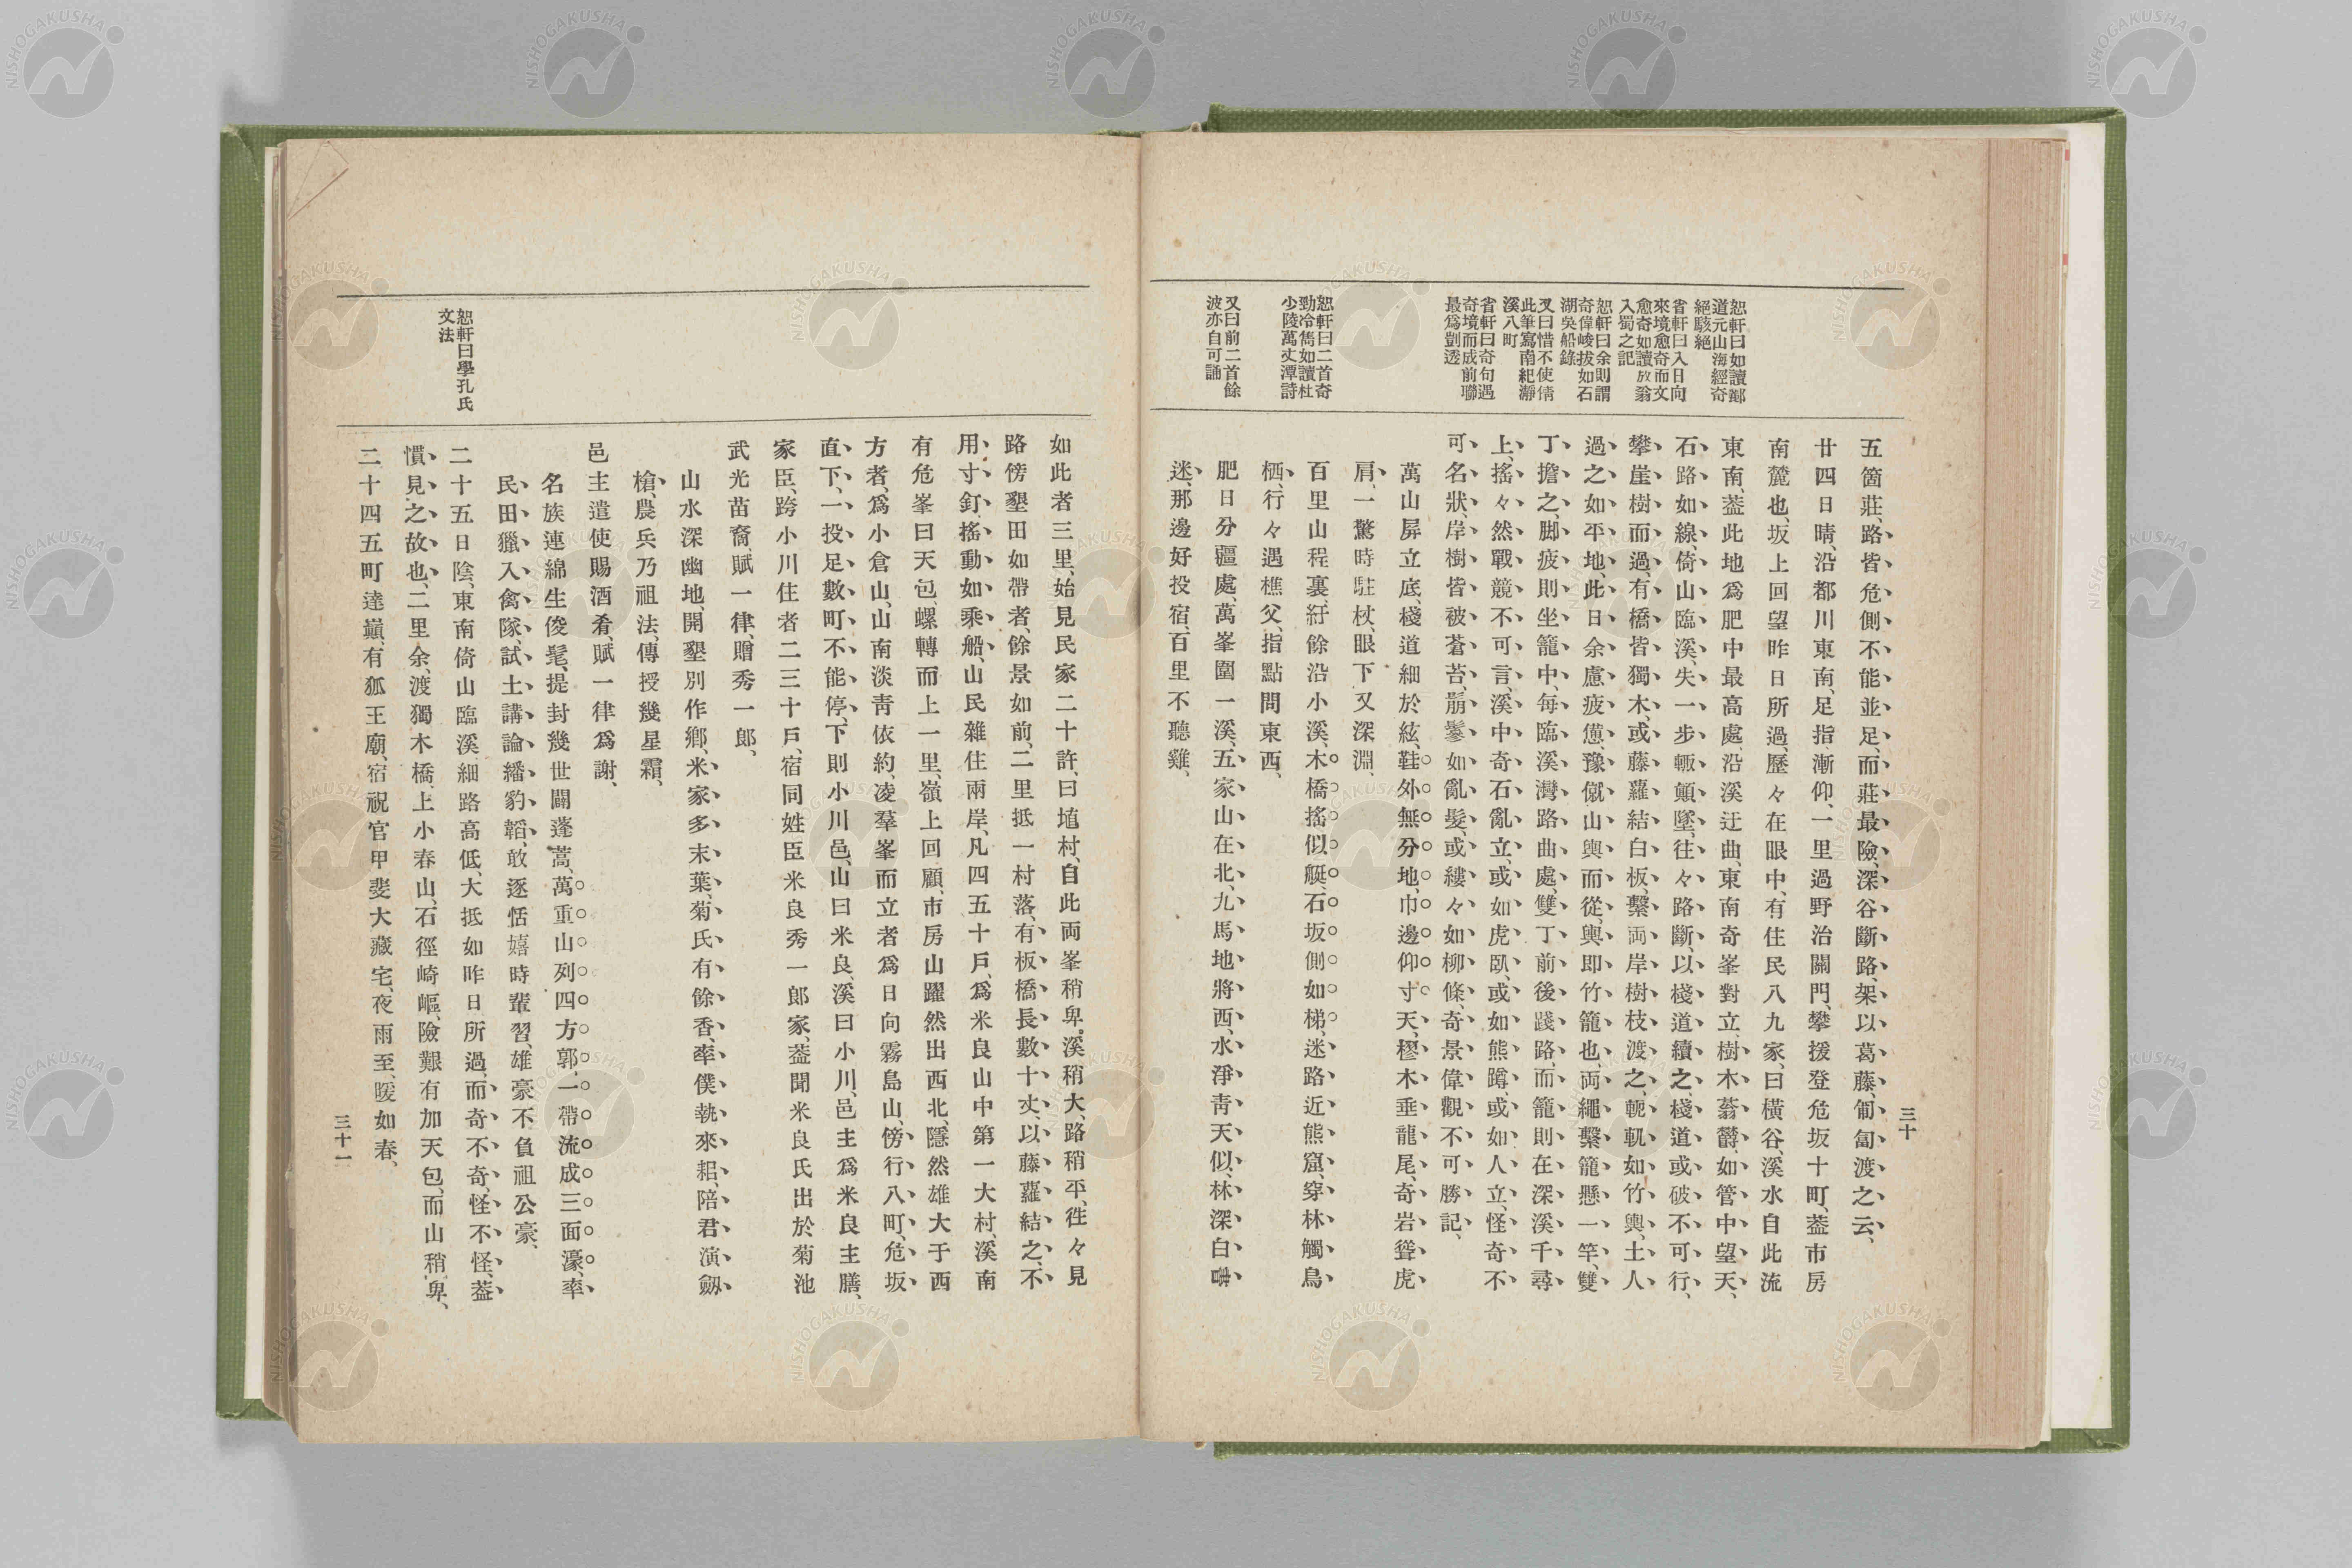 恕軒曰如讀酈
道元山海經奇
絕駭絕
省軒曰入日向
來境愈奇而文
愈奇如讀放翁
入蜀之記
恕軒曰余則謂
奇偉峻拔如石
湖吳船錄
又曰惜不使倩
此筆寫南紀瀞
溪八町
省軒曰奇句遇
奇境而成前聯
最爲剴透
恕軒曰二首奇
勁冷雋如讀杜
少陵萬丈潭詩
又曰前二首餘
波亦自可誦
五箇莊、路皆危側不能並足、而莊最險、深谷斷路、架以葛藤、匍匐渡之云、
廿四日晴、沿都川東南、足指漸仰、一里過野治關門、攀援登危坂十町、蓋市房
南麓也、坂上回望昨日所過、歷々在眼中、有住民八九家、曰橫谷、溪水自此流
東南、蓋此地爲肥中最高處、沿溪迂曲、東南奇峯對立、樹木蓊欝、如管中望天、
石路如線、倚山臨溪、失一步輙顛墜、往々路斷、以棧道續之、棧道或破不可行、
攀崖樹而過、有橋皆獨木、或藤蘿結白板、繫両岸樹枝渡之、軛軏如竹輿、土人
過之如平地、此日余慮疲憊、豫僦山輿而從、輿即竹籠也、両繩繫籠懸一竿、雙
丁擔之、脚疲則坐籠中、每臨溪灣路曲處、雙丁前後踐路、而籠則在深溪千尋
上、搖々然戰競不可言、溪中奇石亂立、或如虎臥、或如熊蹲、或如人立、怪奇不
可名狀、岸樹皆被蒼苔、鬅鬙如亂髮、或縷々如柳條、奇景偉觀不可勝記、
萬山屏立底、棧道細於絃、鞋外無分地、巾邊仰寸天、樛木垂龍尾、奇岩聳虎
肩、一驚時駐杖、眼下又深淵、
百里山程裏、紆餘沿小溪、木橋搖似艇、石坂側如梯、迷路近熊窟、穿林觸鳥
栖、行々遇樵父、指點問東西、
肥日分疆處、萬峯圍一溪、五家山在北、九馬地將西、水淨靑天似、林深白晝
迷、那邊好投宿、百里不聽雞、
三十
恕軒曰學孔氏
文法
如此者三里、始見民家二十許、曰埴村、自此両峯稍卑、溪稍大、路稍平、徃々見
路傍墾田如帶者、餘景如前、二里抵一村落、有板橋長數十丈、以藤蘿結之、不
用寸釘、搖動如乘船、山民雜住兩岸、凡四五十戶、爲米良山中第一大村、溪南
有危峯曰天包、螺轉而上一里、嶺上回顧、市房山躍然出西北、隱然雄大于西
方者、爲小倉山、山南淡靑依約、凌羣峯而立者爲日向霧島山、傍行八町、危坂
直下、一投足數町不能停、下則小川邑、山曰米良、溪曰小川、邑主爲米良主膳、
家臣、跨小川住者二三十戶、宿同姓臣米良秀一郎家、蓋聞米良氏出於菊池
武光苗裔、賦一律、贈秀一郎、
山水深幽地、開墾別作鄕、米家多末葉、菊氏有餘香、率僕執來耜、陪君演劔
槍、農兵乃祖法、傳授幾星霜、
邑主遣使賜酒肴、賦一律爲謝、
名族連綿生俊髦、提封幾世闢蓬蒿、萬重山列四方郭、一帶流成三面濠、率
民田獵入禽隊、試士講論繙豹韜、敢逐恬嬉時輩習、雄豪不負祖公豪、
二十五日陰、東南倚山臨溪、細路高低、大抵如昨日所過、而奇不奇、怪不怪、蓋
慣見之故也、二里余、渡獨木橋、上小春山、石徑崎嶇、險艱有加天包、而山稍卑、
二十四五町達巓、有狐王廟、宿祝官甲斐大藏宅、夜雨至、暖如春、
三十一